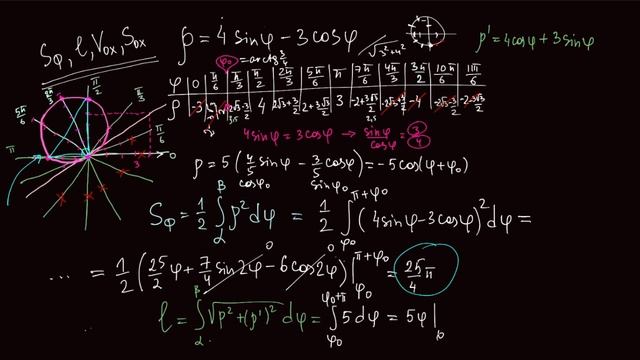 S_φ, l, V_ox, S_ox
ρ = 4 sinφ − 3 cosφ
√(3²+4²)
ρ' = 4cosφ + 3sinφ
φ₀ = arctg 3/4
φ 0 π/6 π/3 π/2 2π/3 5π/6 π 7π/6 4π/3 3π/2 10π/6 11π/6
ρ −3 2√3−3/2 4 2√3+3/2 2+3√3/2 3 −2+3√3/2 −4 −2√3−3/2 −2−3√3/2
4 sinφ = 3cosφ → sinφ/cosφ = 3/4
ρ = 5(4/5 sinφ − 3/5 cosφ) = −5cos(φ+φ₀)
cosφ₀ sinφ₀
S_φ = 1/2 ∫_α^β ρ² dφ = 1/2 ∫_φ₀^{π+φ₀} (4sinφ − 3cosφ)² dφ =
... = 1/2 (25/2 φ + 7/4 sin2φ − 6cos2φ) |_φ₀^{π+φ₀} = 25/4 π
0 0
l = ∫_α^β √(ρ² + (ρ')²) dφ = ∫_φ₀^{φ₀+π} 5 dφ = 5φ |
2π/3 π/2 π/3
5π/6 π/6
π 0
3